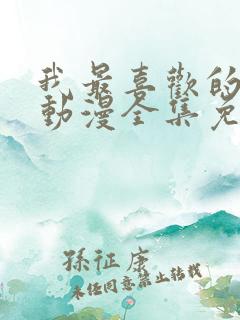 我最喜歡的
動漫全集免
孫征康
未经同意禁止转载